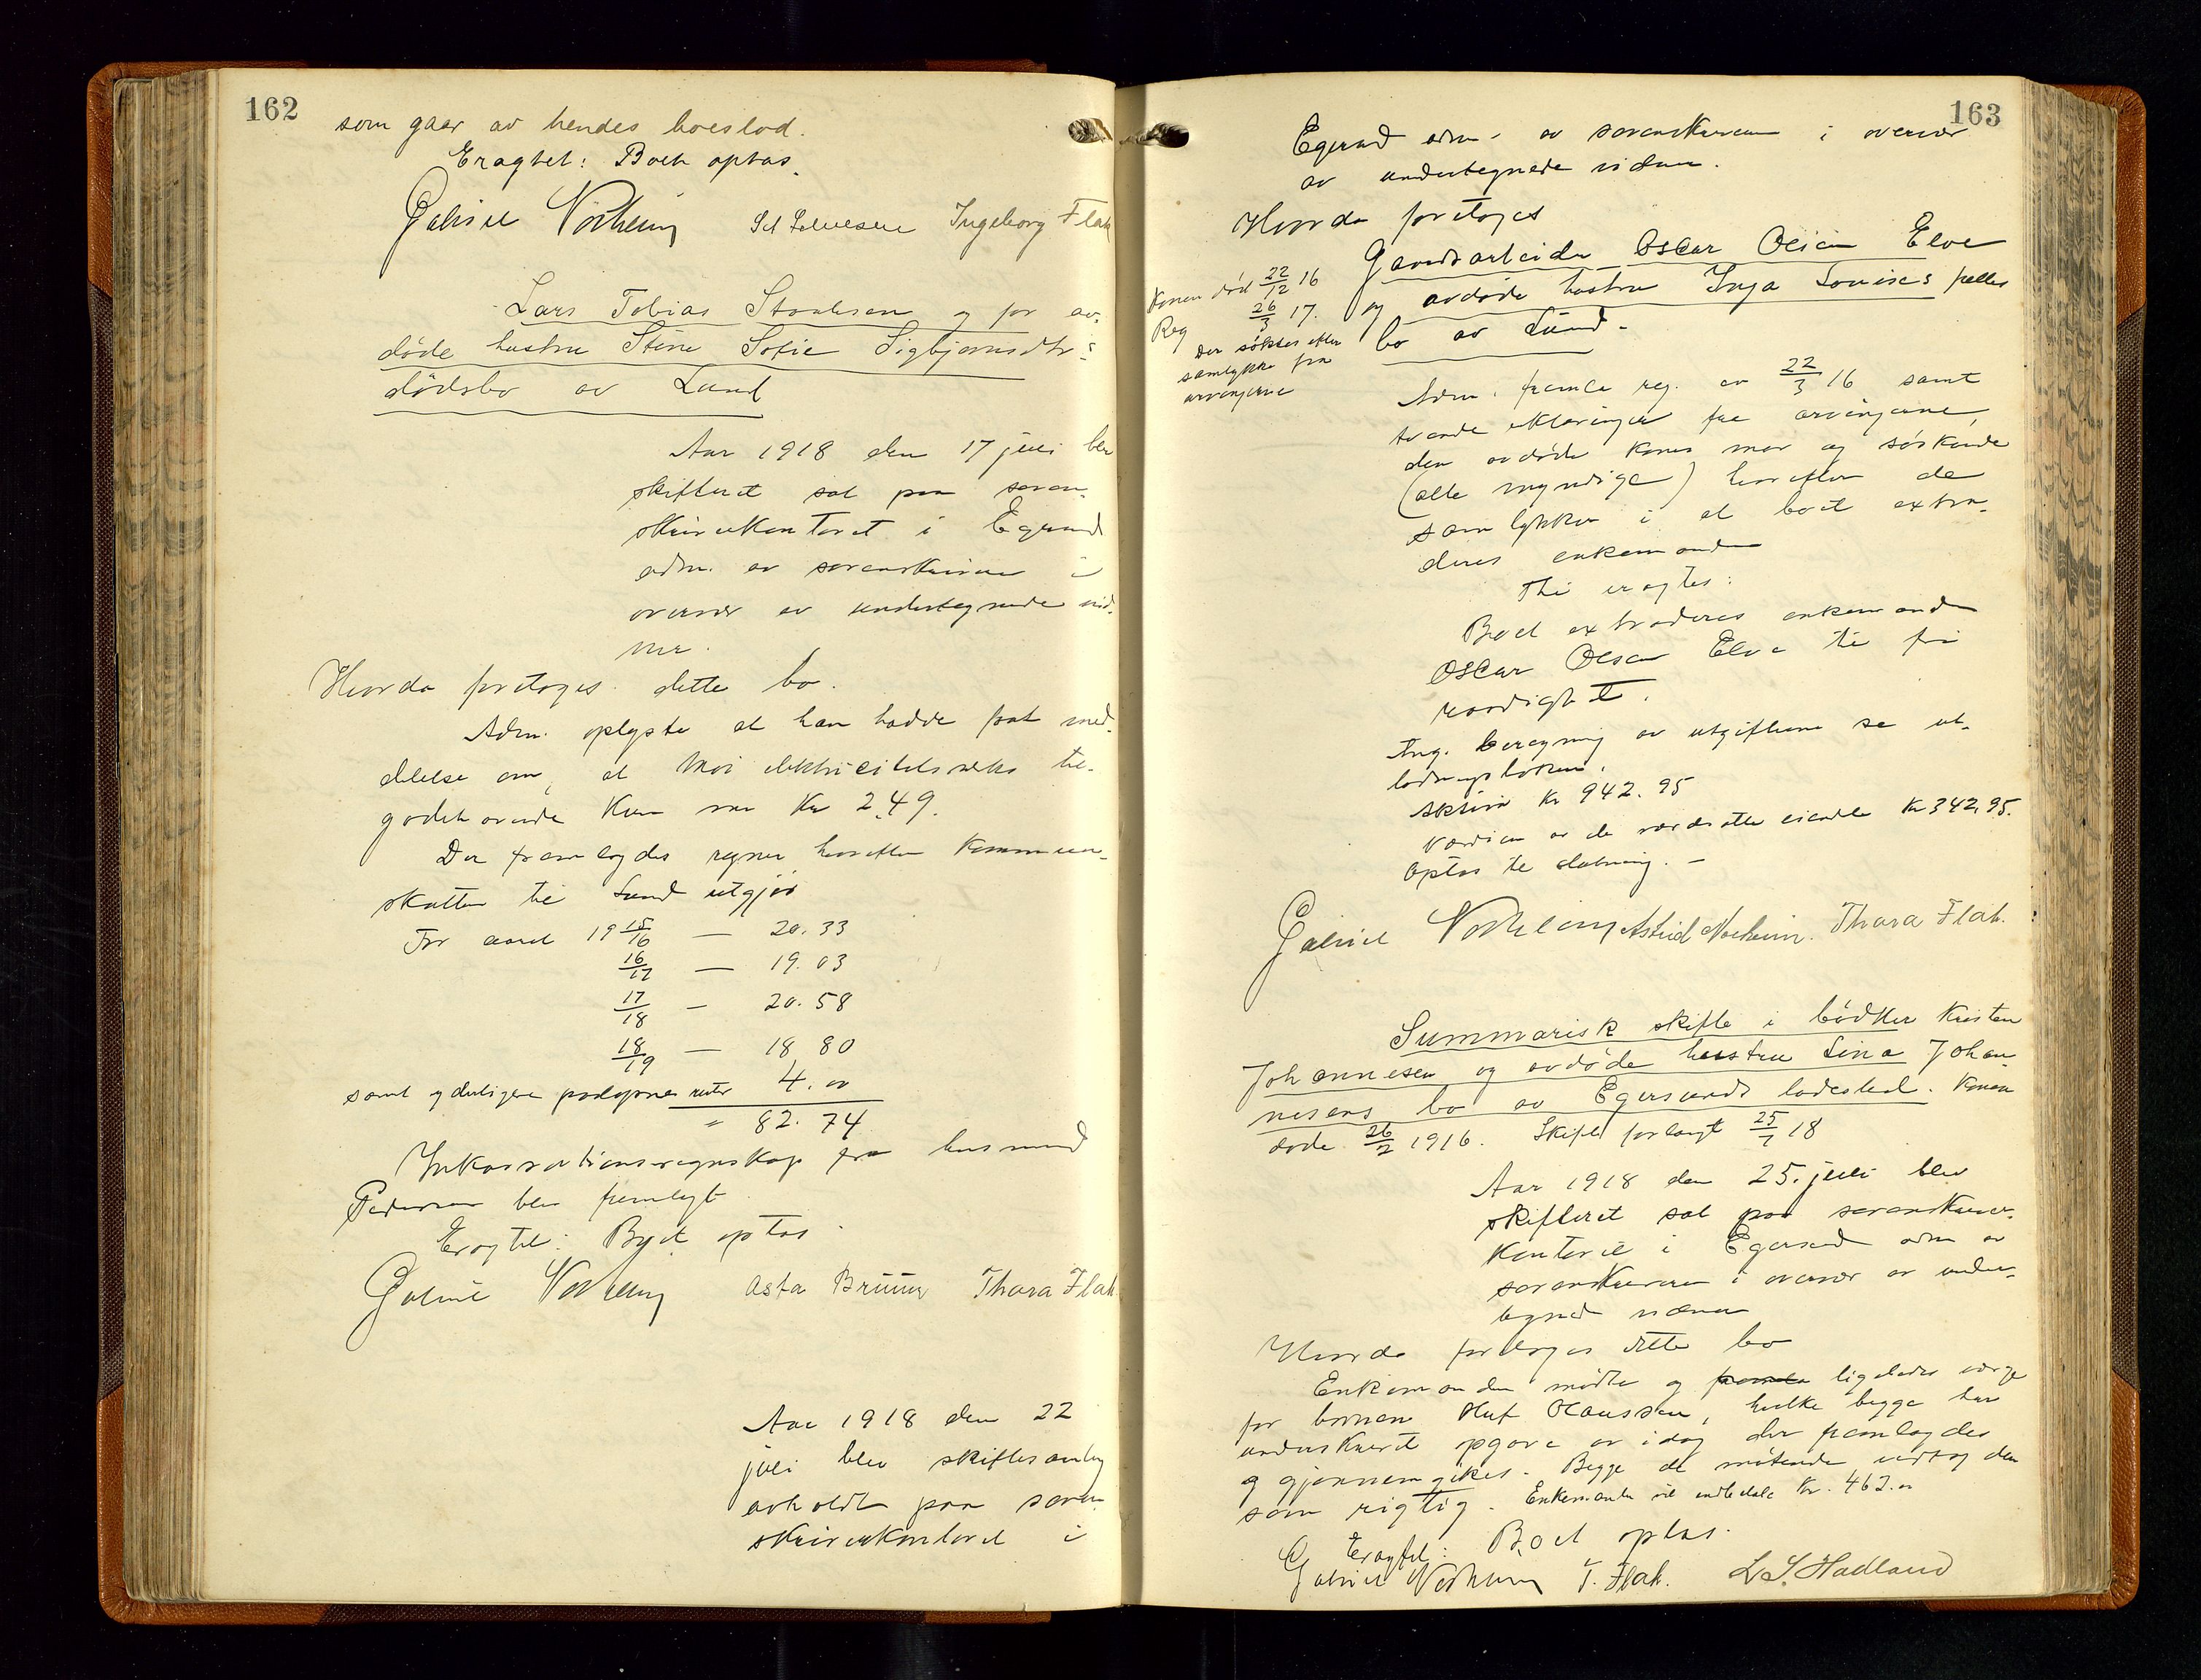 162
som gaar av hendes boeslod.
Eragtet: Boet optas.
Gabriel Norheim Ingeborg Flak
Lars Tobias Stoulesen og for av-
døde hustru Stine Sofie Sigbjørnsdtr's
dødsbo av Lund
Aar 1918 den 17 juli blev
skifteret sat paa soren-
skriverkontoret i Egersund
adm. av sorenskriveren i
overvær av undertegnede vid-
ner.
Hvorda foretoges dette bo.
Adm. oplyste at han hadde faat med-
delelse om, at Moi elektricitetsverks til-
godehavende kun var Kr 2.49.
Der fremlagdes regner hvorefter kommune-
skatten til Lund utgjør
For aaret 19 15/16 — 20.33
16/17 — 19.03
17/18 — 20.58
18/19 — 18,80
samt yderligere paaløpne renter 4.00
= 82.74
Inkassationsregnskap fra lensmand
Pedersen blev fremlagt
Eragtet: Boet optas.
Gabriel Norheim Asta Brünner Thora Flak
Aar 1918 den 22
juli blev skiftesamling
avholdt paa soren
skriverkontoret i
163
Egersund adm. av sorenskriveren i overvær
av undertegnede vidner.
Hvorda foretoges
Gaardsarbeider Oscar Olsen Elve
og avdøde hustru Inga Louises fælles
bo av Lund.
Konen død 22/12 16
Reg 26/3 17.
Der søktes efter
samtykke fra
arvingerne
Adm. fremla reg. av 22/3 16 samt
tvende erklæringer fra arvingerne,
den avdøde kones mor og søskende
(alle myndige) hvorefter de
samtykker i at boet extra-
deres enkemanden
Thi eragtes:
Boet extraderes enkemanden
Oscar Olsen Elve til fri
raadighet.
Ang. beregning av utgifterne se ut-
lodningsboken.
Aktiva Kr 942.95
Værdien av de værdsatte eiendele Kr 342,95.
Optas til slutning. —
Gabriel Norheim Astrid Norheim. Thora Flak.
Summarisk skifte i bødker Kristen
Johannesen og avdøde hustru Lina Johan
nesens bo av Egersunds ladested. Konen
døde 26/2 1916. Skifte forlangt 25/7 18
Aar 1918 den 25. juli blev
skifteret sat paa sorenskriver-
kontoret i Egersund adm av
sorenskriveren i overvær av under-
tegned vidner
Hvorda foretoges dette bo
Enkemanden møtte og fremla ligeledes verge
for børnene Oluf Olaussen, hvilke begge har
underskrevet opgave av idag der fremlagdes
og gjennemgikes. Begge de møtende vedtog den
som rigtig. Enkemanden vil indbetale Kr. 462.00
Eragtet: Boet optas.
Gabriel Norheim T. Flak. L. S. Hadland